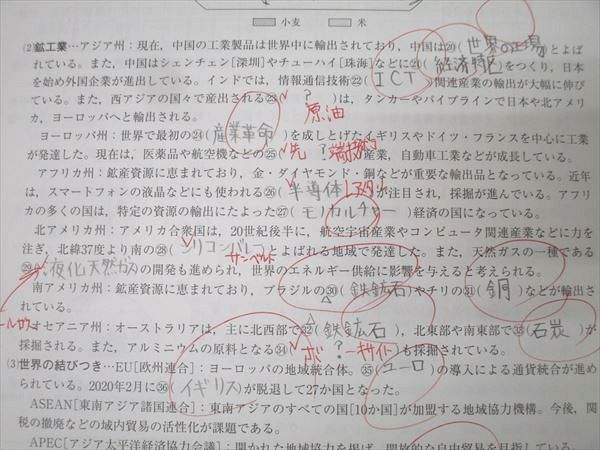 小麦 米
(2)鉱工業…アジア州：現在，中国の工業製品は世界中に輸出されており，中国は⑳(世界の工場)とよば
れている。また，中国はシェンチェン[深圳]やチューハイ[珠海]などに㉑(経済特区)をつくり，日本
を始め外国企業が進出している。インドでは，情報通信技術㉒(ICT)関連産業の輸出が大幅に伸び
ている。また，西アジアの国々で産出される㉓(?)は，タンカーやパイプラインで日本や北アメリ
カ，ヨーロッパへと輸出される。
原油
ヨーロッパ州：世界で最初の㉔(産業革命)を成しとげたイギリスやドイツ・フランスを中心に工業
が発達した。現在は，医薬品や航空機などの㉕(先?端技術)産業，自動車工業などが成長している。
アフリカ州：鉱産資源に恵まれており，金・ダイヤモンド・銅などが重要な輸出品となっている。近年
は，スマートフォンの液晶などにも使われる㉖(半導体レアメタル)が注目され，採掘が進んでいる。アフリ
カの多くの国は，特定の資源の輸出にたよった㉗(モノカルチャー)経済の国になっている。
北アメリカ州：アメリカ合衆国は，20世紀後半に，航空宇宙産業やコンピュータ関連産業などに力を
注ぎ，北緯37度より南の㉘(シリコンバレー)とよばれる地域で発達した。また，天然ガスの一種である
サンベルト
㉙(液化天然ガス)の開発も進められ，世界のエネルギー供給に影響を与えると考えられる。
南アメリカ州：鉱産資源に恵まれており，ブラジルの㉚(鉄鉱石)やチリの㉛(銅)などが輸出さ
れている。
オセアニア州：オーストラリアは，主に北西部で㉜(鉄鉱石)，北東部や南東部で㉝(石炭)が
採掘される。また，アルミニウムの原料となる㉞(ボ?ーキサイト)も採掘されている。
(3)世界の結びつき…EU[欧州連合]：ヨーロッパの地域統合体。㉟(ユーロ)の導入による通貨統合が進め
られている。2020年2月に㊱(イギリス)が脱退して27か国となった。
ASEAN[東南アジア諸国連合]：東南アジアのすべての国[10か国]が加盟する地域協力機構。今後，関
税の撤廃などの域内貿易の活性化が課題である。
APEC[アジア太平洋経済協力会議]：開かれた地域協力を掲げ，開放的な自由貿易を目指している。